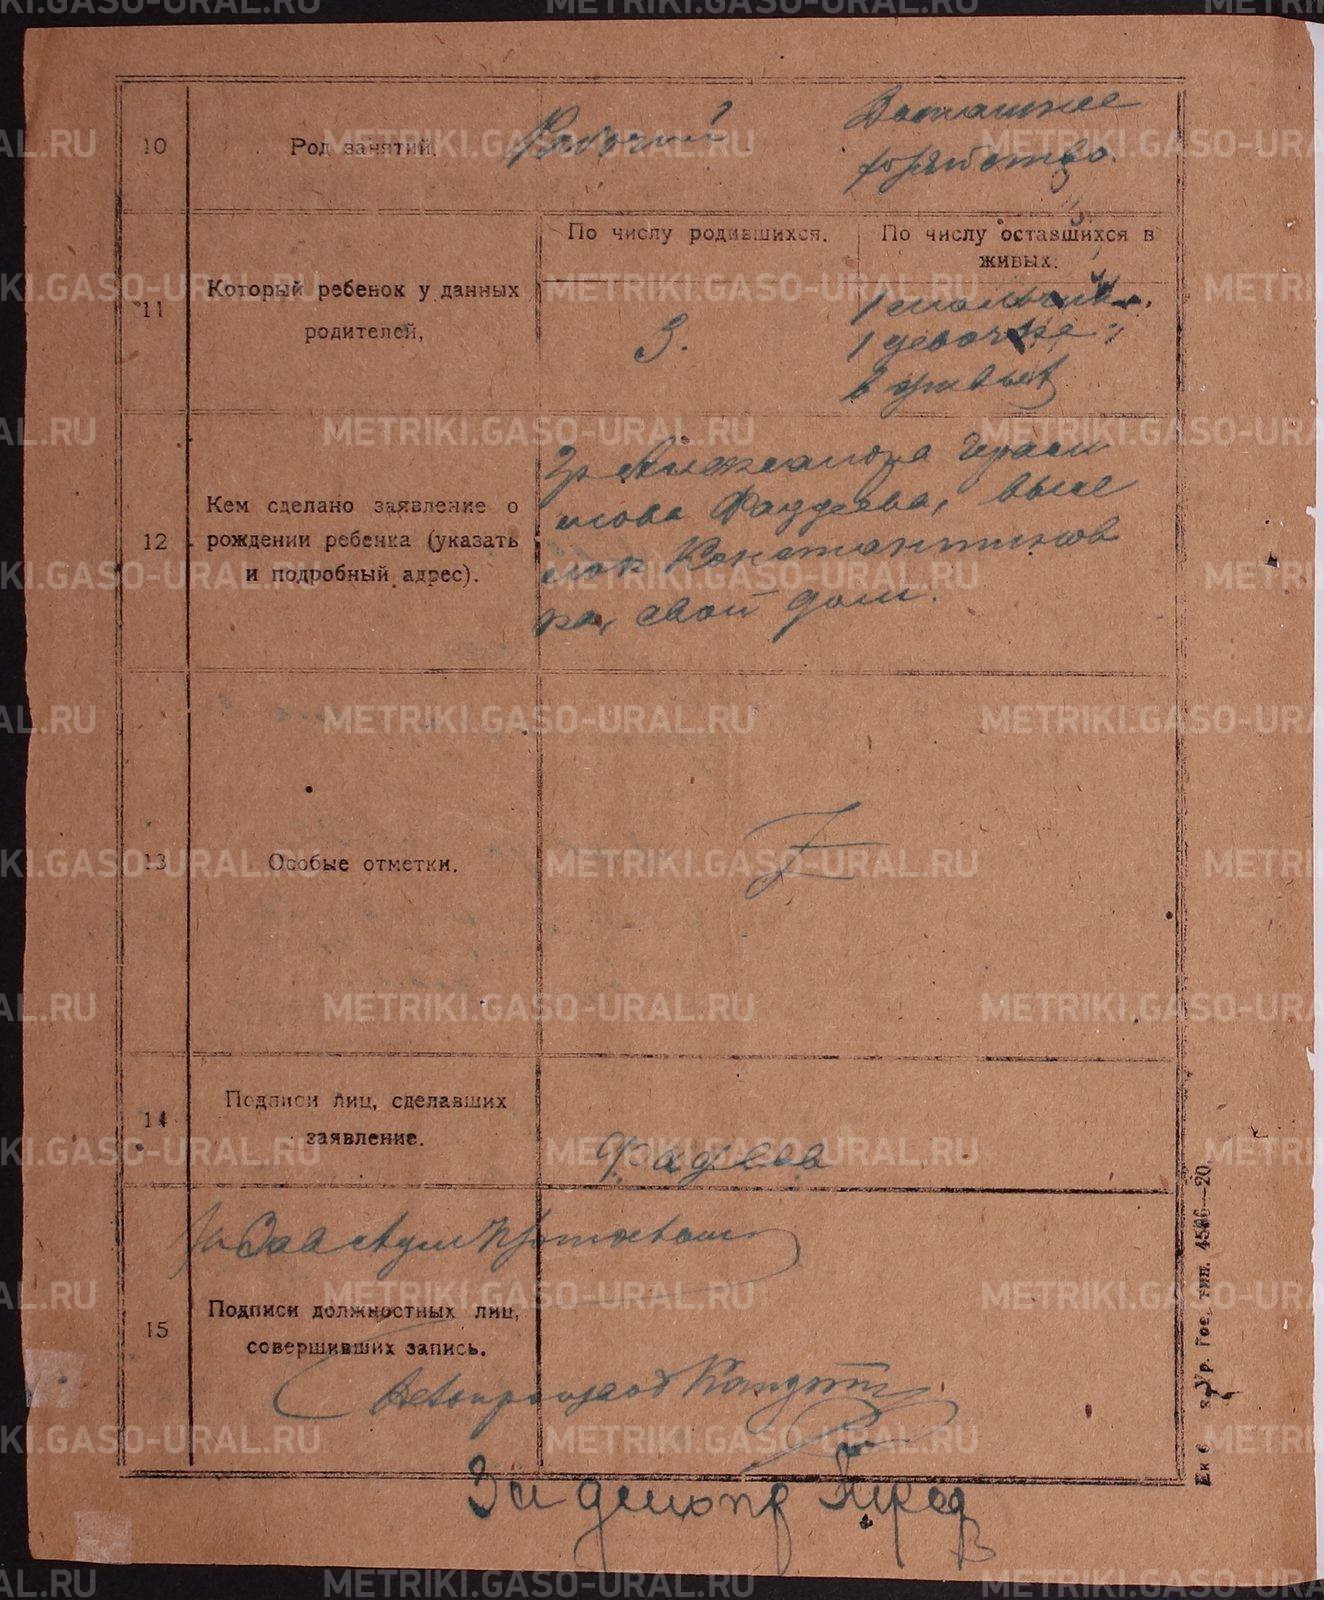 10
Род занятий.
Рабочий.
Домашнее
хозяйство.
11
Который ребенок у данных
родителей,
По числу родившихся.
По числу оставшихся в
живых.
3.
1 мальчик.
1 девочка
в живых
12
Кем сделано заявление о
рождении ребенка (указать
и подробный адрес).
Гр Александра Гераси
мова Фаддеева, высе
лок Константинов
ка, свой дом.
13
Особые отметки.
14
Подписи лиц, сделавших
заявление.
Фадеев
15
Подписи должностных лиц,
совершивших запись.
За Зав
Делопроизвод
За
Екб Ур. Гос. тип. 4506—20.
METRIKI.GASO-URAL.RU